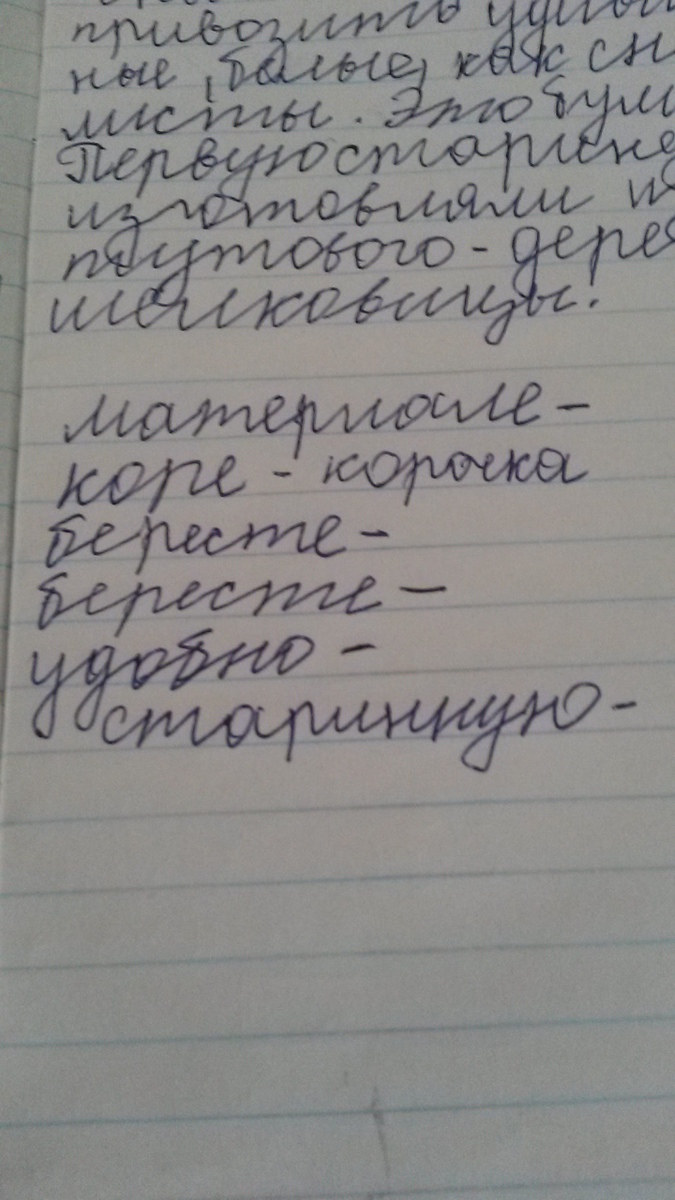 привозить удиви
ные, белые, как сн
листы. Это бума
Первую старинн
изготовляли и
тутового-дере
шелковицы.
материале-
коре - корочка
бересте-
бересте-
удобно-
старинную-